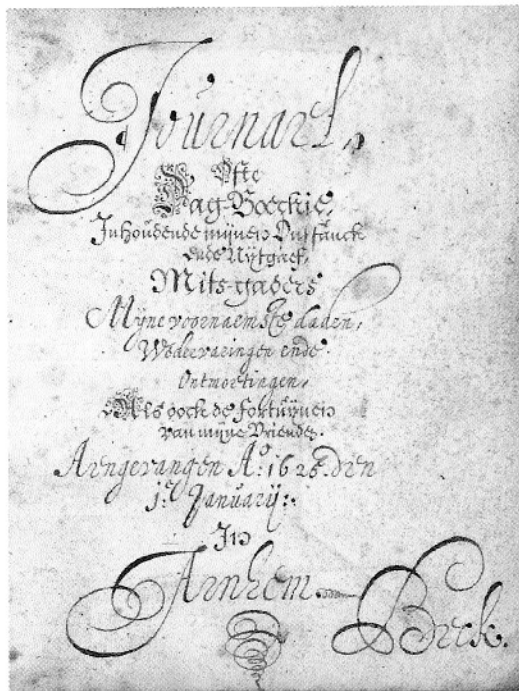 Journael,
Ofte
Dag-Boeckie,
Inhoudende mijnen Ontfanck
ende Uÿtgaef,
Mits-gaders
Mijne voornaemste daden,
Wedervaringen ende
Ontmoetingen,
Als oock de fortuÿnen
van mijne Vrienden.
Aengevangen Aº. 1628. den
1.e Januarij:.
In
Arnhem. Beck.